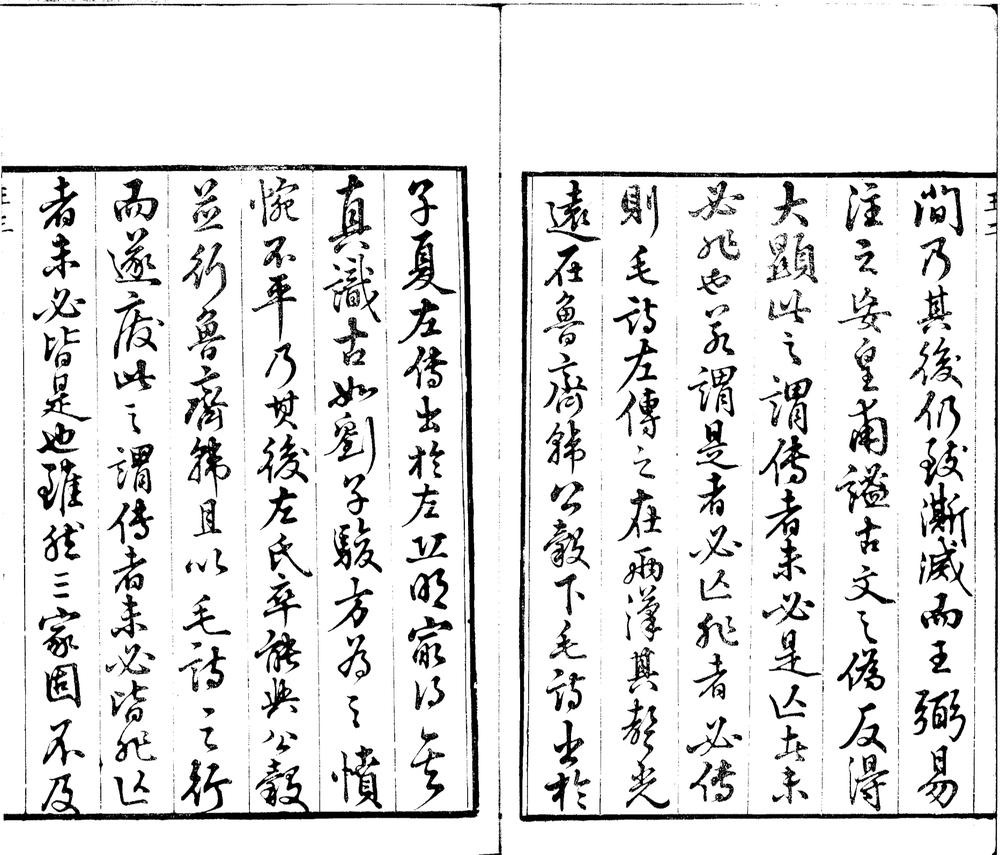 間乃其後仍致澌滅而王弼易
注之妄皇甫謐古文之偽反得
大顯此之謂傳者未必是亡者未
必非也若謂是者必亡非者必傳
則毛詩左傳之在兩漢其聲光
遠在魯齊韓公穀下毛詩出於
子夏左傳出於左丘明㝡得其
真識古如劉子駿方為之憤
惋不平乃其後左氏卒能與公穀
並行魯齊韓且以毛詩之行
而遂廢此之謂傳者未必皆非亡
者未必皆是也雖然三家固不及